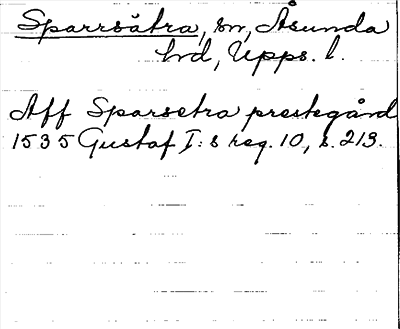 Sparrsätra, sn, Åsunda
hd, Upps. l.
Aff Sparsetra prestegård
1535 Gustaf I:s reg. 10, s. 213.